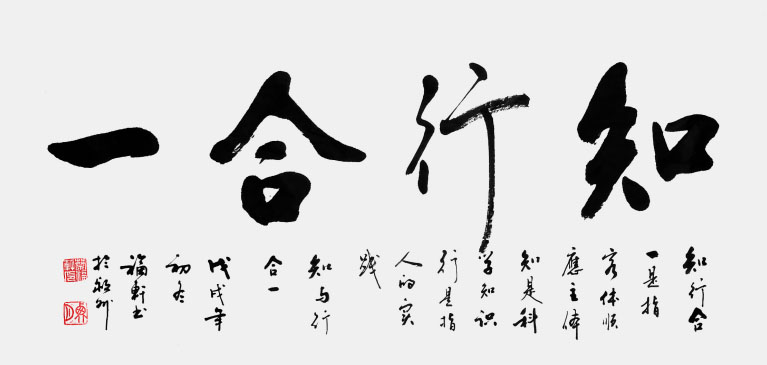 知行合一
知行合
一是指
客体顺
應主体
知是科
学知识
行是指
人的实
践
知与行
合一
戊戌年
初冬
福軒书
於
州